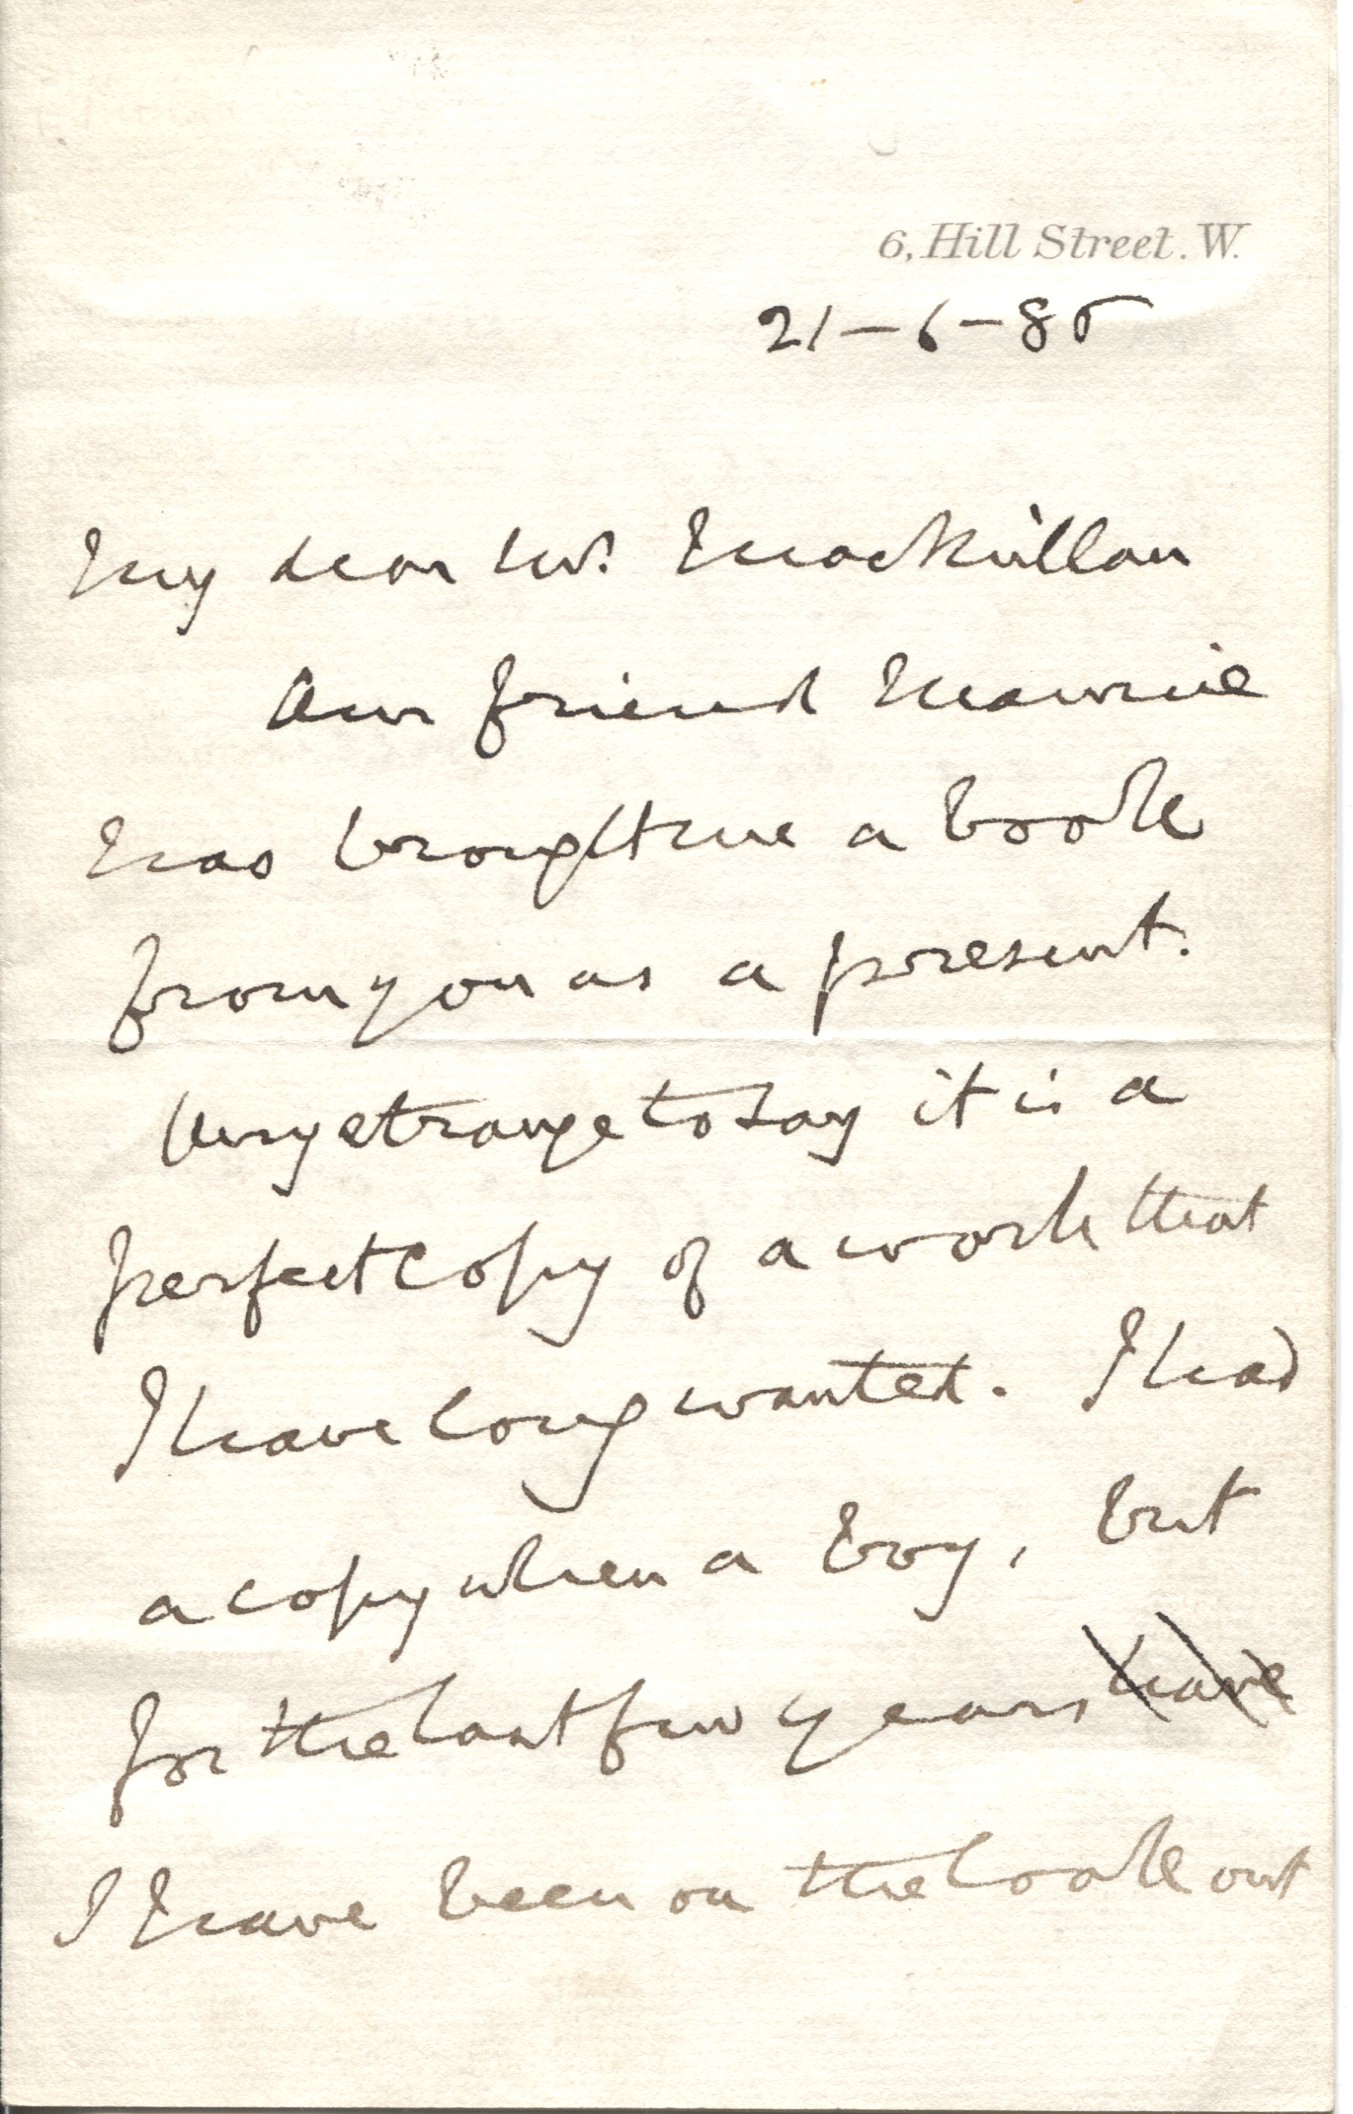 6, Hill Street. W.
21-6-85
My dear Mr. MacMillan
Our friend
has brought me a book
from you as a present.
Very strange to say it is a
perfect copy of a work that
I have long wanted. I had
a copy when a boy, but
for the last few years have
I have been on the look out